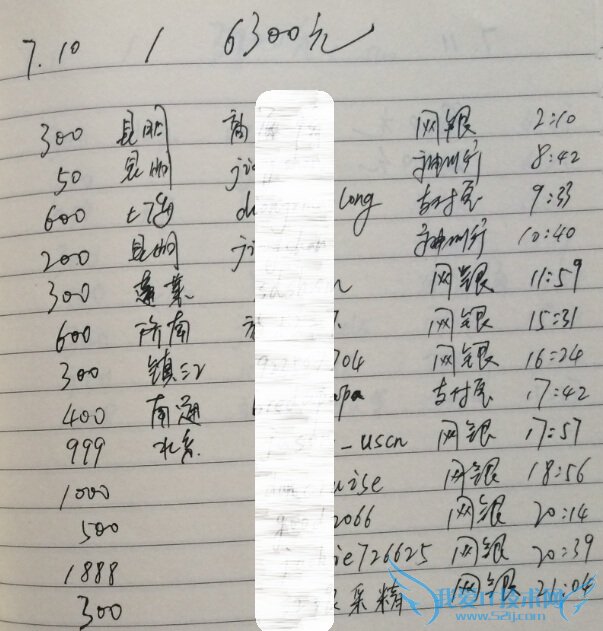 7.10 1 6300元
300 昆明 网银 2:10
50 昆明 ji 神州行 8:42
600 上海 d long 支付宝 9:33
200 昆明 ji 神州行 10:40
300 蓬莱 n 网银 11:59
600 济南 网银 15:31
300 镇江 704 网银 16:24
400 南通 pa 支付宝 17:42
999 北京 _uscn 网银 17:57
1000 uise 网银 18:56
500 2066 网银 20:14
1888 ie726625 网银 20:39
300 采精 网银 21:04
我爱IT技术网
www.52ij.com